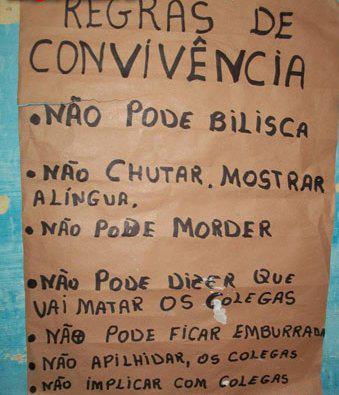 REGRAS DE
CONVIVÊNCIA
•NÃO PODE BILISCA
•NÃO CHUTAR. MOSTRAR
A LÍNGUA.
•NÃO PODE MORDER
•NÃO PODE DIZER QUE
VAI MATAR OS COLEGAS
•NÃO PODE FICAR EMBURRADA
•NÃO APILHIDAR, OS COLEGAS
•NÃO IMPLICAR COM COLEGAS